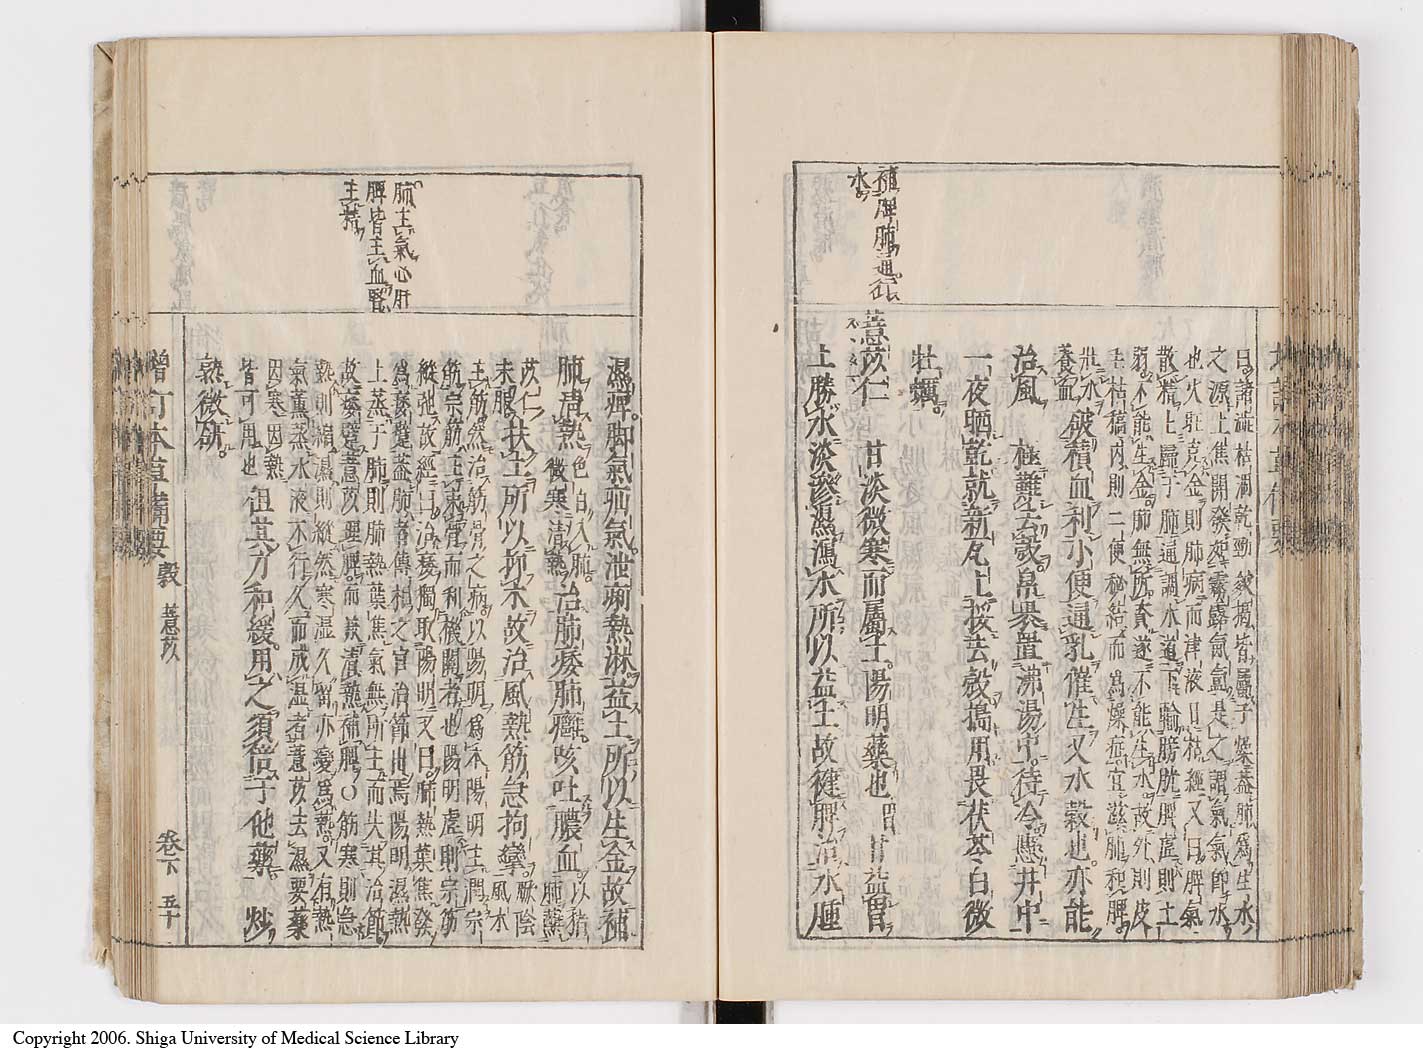 補脾肺通行
水
曰諸澁枯涸乾勁皴揭皆屬于燥蓋肺爲生水
之源上焦開發如霧露氤氲是之謂氣氣卽水
也火旺克金則肺病而津液日枯經又曰脾氣
散精上歸于肺通調水道下輸膀胱脾虛則土
弱不能生金肺無所資遂不能生水故外則皮
毛枯槁內則二便秘結而爲燥症宜滋肺和脾
壯水
養血 破積血利小便通乳催生又水穀也亦能
治風 極難去殼帛裹置沸湯中待冷懸井中
一夜晒乾就新瓦上挼去殼搗用畏茯苓白薇
牡蠣
薏苡仁 甘淡微寒而屬土陽明藥也 甘益胃
土勝水淡滲濕瀉水所以益土故健脾治水腫
肺主氣心肝
脾皆主血腎
主精
濕痺脚氣疝氣泄痢熱淋益土所以生金故補
肺淸熱 色白入肺微寒淸熱 治肺痿肺癰咳吐膿血 以猪肺蘸
苡仁末服 扶土所以抑木故治風熱筋急拘攣 厥陰風木
主筋然治筋骨之病以陽明爲本陽明主潤宗
筋宗筋主束骨而利機關者也陽明虛則宗筋
縱弛故經曰治痿獨取陽明又曰肺熱葉焦發
爲痿躄蓋肺者傳相之官治節出焉陽明濕熱
上蒸于肺則肺熱葉焦氣無所主而失其治節
故痿躄薏苡理脾而兼淸熱補肺○筋寒則急
熱則縮濕則縱然寒濕久留亦變爲熱又有熱
氣薰蒸水液不行久而成濕者薏苡去濕要藥
因寒因熱
皆可用也 但其力和緩用之須倍于他藥 炒
熟微研
增訂本草備要 穀 薏苡 卷下 五十